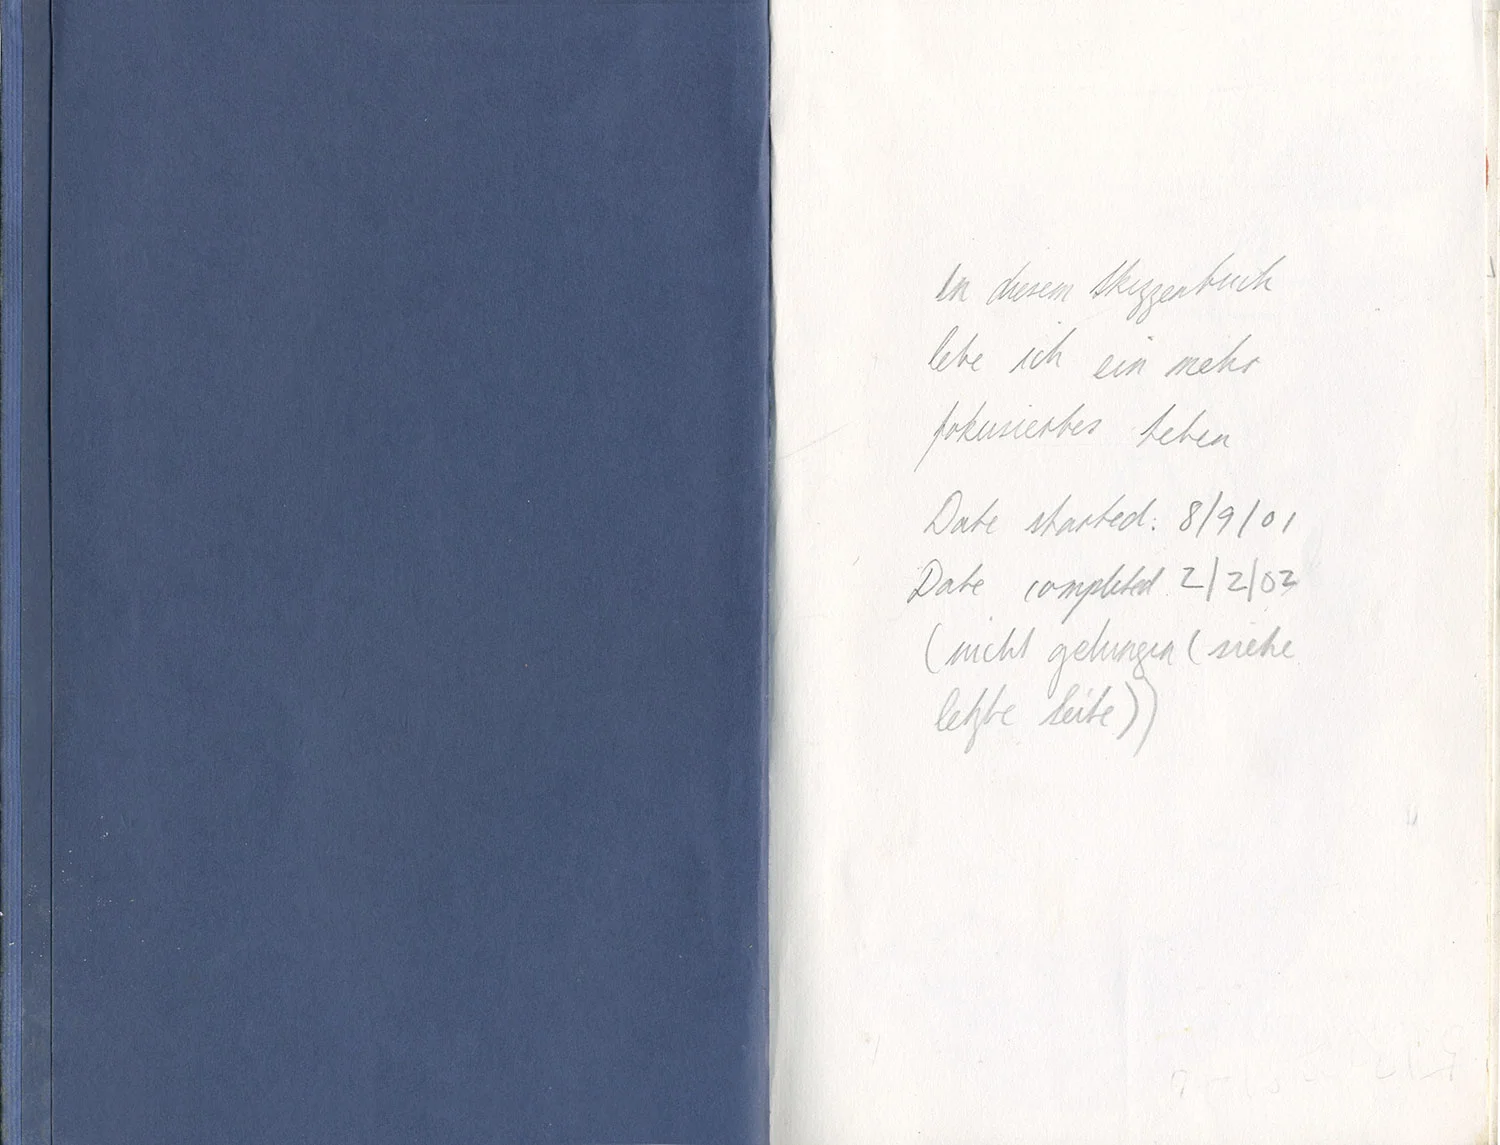 In diesem Skizzenbuch
lebe ich ein mehr
fokusiertes Leben
Date started: 8/9/01
Date completed 2/2/03
(nicht gelungen (siehe
letzte Seite))